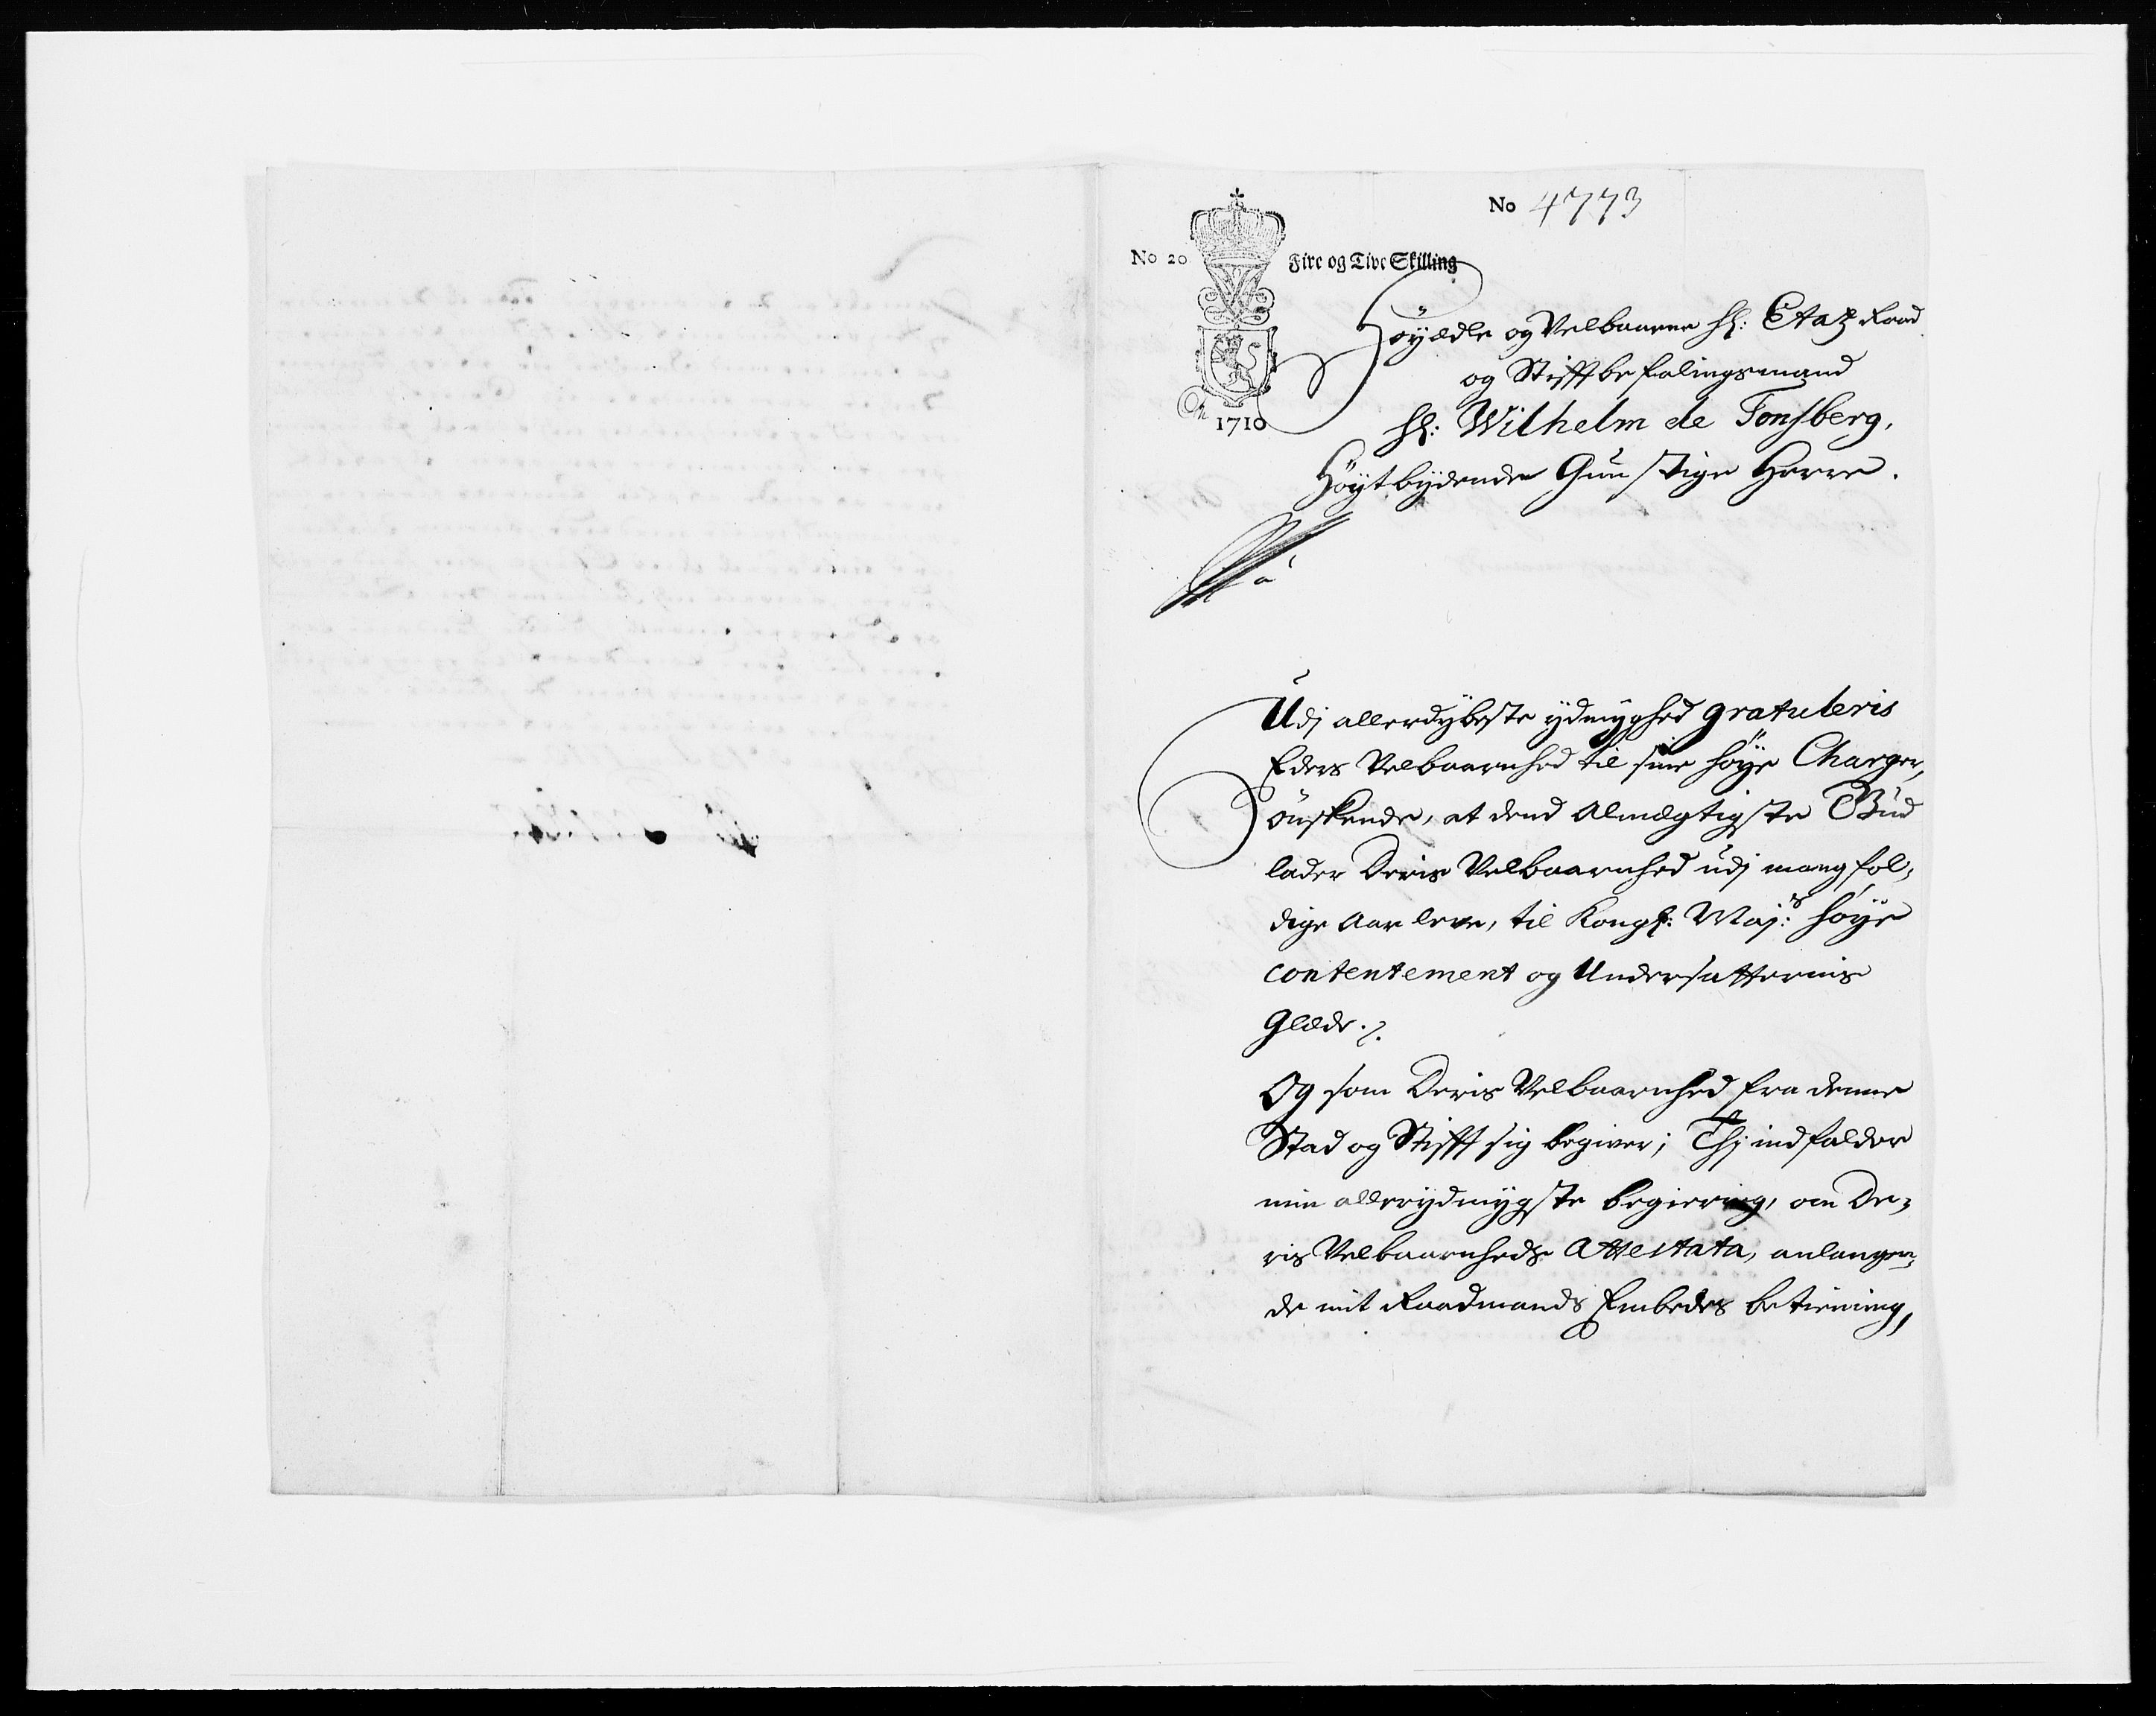 No 4773
No 20
Fire og Tive Skilling
1710
Høyædle og Velbaarne Hr: Etatz Raad
og Stifftbefalingsmand
Hr: Wilhelm de Tonsberg,
Høytbydende Gunstige Herre.
Udj allerdybeste ydmyghed gratuleris
Eders Velbaarnhed til sine høye Charger,
ønskende, at dend Almægtigste Gud
lader Deris Velbaarnhed udj mangfol-
dige Aar leve, til Kongl: Maj:s høye
contentement og Undersatternis
Glæde ./.
Og som Deris Velbaarnhed fra denne
Stad og Stifft sig begiver; Thj indfalder
min allerydmygste begiering, om De-
ris Velbaarnheds Attestata, anlangen-
de mit Raadmands Embedes betiening,